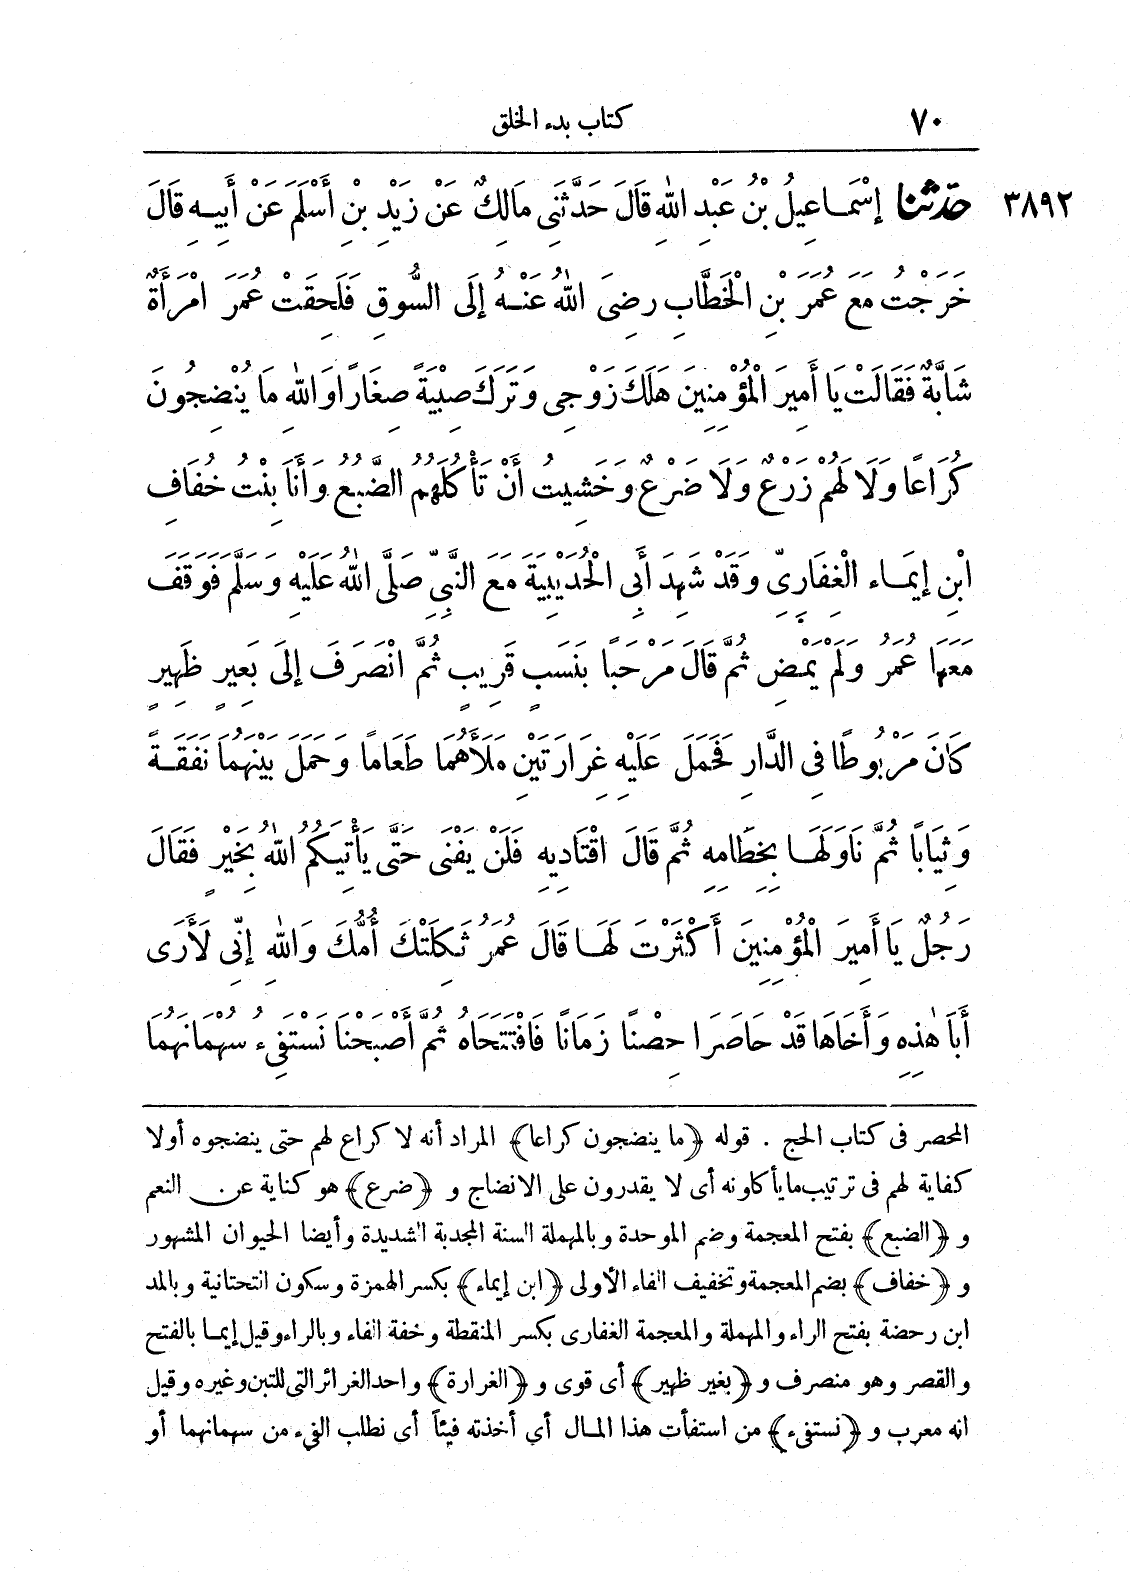 ٧٠ كتاب بدء الخلق
٣٨٩٢ حدّثنا إِسْمَاعِيلُ بْنُ عَبْدِ اللهِ قَالَ حَدَّثَنِى مَالِكٌ عَنْ زَيْدِ بْنِ أَسْلَمَ عَنْ أَبِيهِ قَالَ
خَرَجْتُ مَعَ عُمَرَ بْنِ الْخَطَّابِ رَضِىَ اللهُ عَنْهُ إِلَى السُّوقِ فَلَحِقَتْ عُمَرَ امْرَأَةٌ
شَابَّةٌ فَقَالَتْ يَا أَمِيرَ الْمُؤْمِنِينَ هَلَكَ زَوْجِى وَتَرَكَ صِبْيَةً صِغَارًا وَاللهِ مَا يُنْضِجُونَ
كُرَاعًا وَلَا لَهُمْ زَرْعٌ وَلَا ضَرْعٌ وَخَشِيتُ أَنْ تَأْكُلَهُمُ الضَّبُعُ وَأَنَا بِنْتُ خُفَافِ
ابْنِ إِيمَاء الْغِفَارِىِّ وَقَدْ شَهِدَ أَبِى الْحُدَيْبِيَةَ مَعَ النَّبِىِّ صَلَّى اللهُ عَلَيْهِ وَسَلَّمَ فَوَقَفَ
مَعَهَا عُمَرُ وَلَمْ يَمْضِ ثُمَّ قَالَ مَرْحَبًا بِنَسَبٍ قَرِيبٍ ثُمَّ انْصَرَفَ إِلَى بَعِيرٍ ظَهِيرٍ
كَانَ مَرْبُوطًا فِى الدَّارِ فَحَمَلَ عَلَيْهِ غِرَارَتَيْنِ مَلَأَهُمَا طَعَامًا وَحَمَلَ بَيْنَهُمَا نَفَقَةً
وَثِيَابًا ثُمَّ نَاوَلَهَا بِخِطَامِهِ ثُمَّ قَالَ اقْتَادِيهِ فَلَنْ يَفْنَى حَتَّى يَأْتِيَكُمُ اللهُ بِخَيْرٍ فَقَالَ
رَجُلٌ يَا أَمِيرَ الْمُؤْمِنِينَ أَكْثَرْتَ لَهَا قَالَ عُمَرُ ثَكِلَتْكَ أُمُّكَ وَاللهِ إِنِّى لَأَرَى
أَبَا هٰذِهِ وَأَخَاهَا قَدْ حَاصَرَا حِصْنًا زَمَانًا فَافْتَتَحَاهُ ثُمَّ أَصْبَحْنَا نَسْتَفِىءُ سُهْمَانَهُمَا
المحصر فى كتاب الحج . قوله ﴿ما ينضجون كراعا﴾ المراد أنه لا كراع لهم حتى ينضجوه أولا
كفاية لهم فى ترتيب ما يأكلونه أى لا يقدرون على الانضاج و ﴿ضرع﴾ هو كناية عن النعم
و ﴿الضبع﴾ بفتح المعجمة وضم الموحدة وبالمهملة السنة المجدبة الشديدة وأيضا الحيوان المشهور
و ﴿خفاف﴾ بضم المعجمة وتخفيف الفاء الأولى ﴿ابن إيماء﴾ بكسر الهمزة وسكون التحتانية وبالمد
ابن رحضة بفتح الراء والمهملة والمعجمة الغفارى بكسر المنقطة وخفة الفاء وبالراء وقيل إيما بالفتح
والقصر وهو منصرف و ﴿بغير ظهير﴾ أى قوى و ﴿الغرارة﴾ واحد الغرائر التى للتبن وغيره وقيل
انه معرب و ﴿نستفىء﴾ من استفأت هذا المال أي أخذته فيئاً أى نطلب الفىء من سهمانهما أو